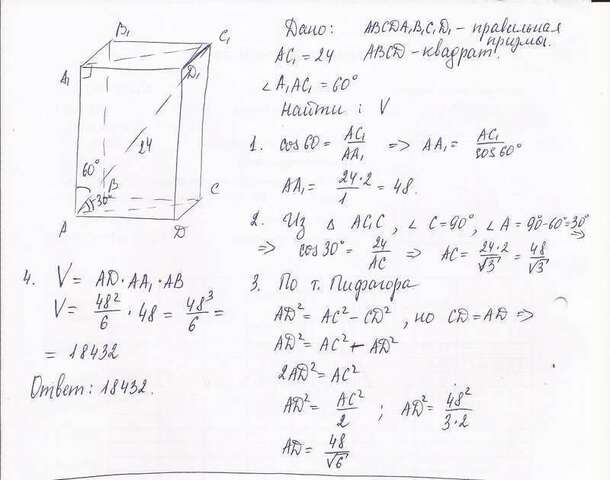 B₁
C₁
A₁
D₁
24
60°
30°
B
C
A
D
Дано: ABCDA₁B₁C₁D₁ - правильная
призма.
AC₁ = 24 ABCD - квадрат.
∠A₁AC₁ = 60°
Найти: V
1. cos60 = AC₁/AA₁ => AA₁ = AC₁/cos60°
AA₁ = 24·2/1 = 48.
2. Из △ AC₁C, ∠C=90°, ∠A=90-60°=30° =>
=> cos30° = 24/AC => AC = 24·2/√3 = 48/√3
3. По т. Пифагора
AD² = AC² - CD², но CD = AD =>
AD² = AC² - AD²
2AD² = AC²
AD² = AC²/2 ; AD² = 48²/3·2
AD = 48/√6
4. V = AD·AA₁·AB
V = 48²/6 · 48 = 48³/6 =
= 18432
Ответ: 18432.